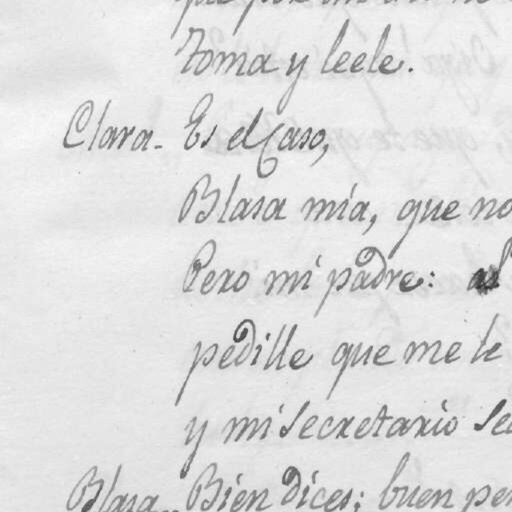 toma y leele.
Clara - Es el Caso,
Blasa mia, que no
Pero mi padre: al
pedille que me le
y mi secretario sea
Blasa - Bien dices; buen pen